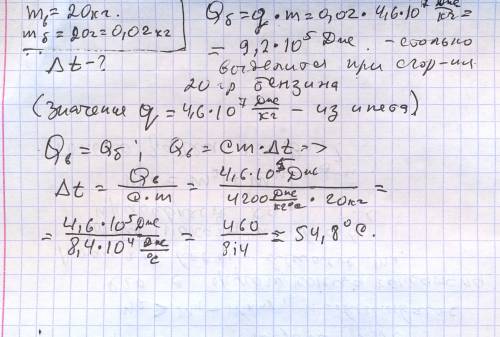 m_в = 20 кг.
m_б = 20 г = 0,02 кг
Δt - ?
Q_б = q · m = 0,02 · 4,6·10⁷ Дж/кг =
= 9,2·10⁵ Дж. - столько
выделится при сгор-ии
20 гр бензина
(Значение q = 4,6·10⁷ Дж/кг - из инета)
Q_в = Q_б; Q_в = cm·Δt =>
Δt = Q_в / c·m = 4,6·10⁵ Дж / 4200 Дж/кг°С · 20 кг =
= 4,6·10⁵ Дж / 8,4·10⁴ Дж/°С = 460 / 8,4 ≈ 54,8°С.